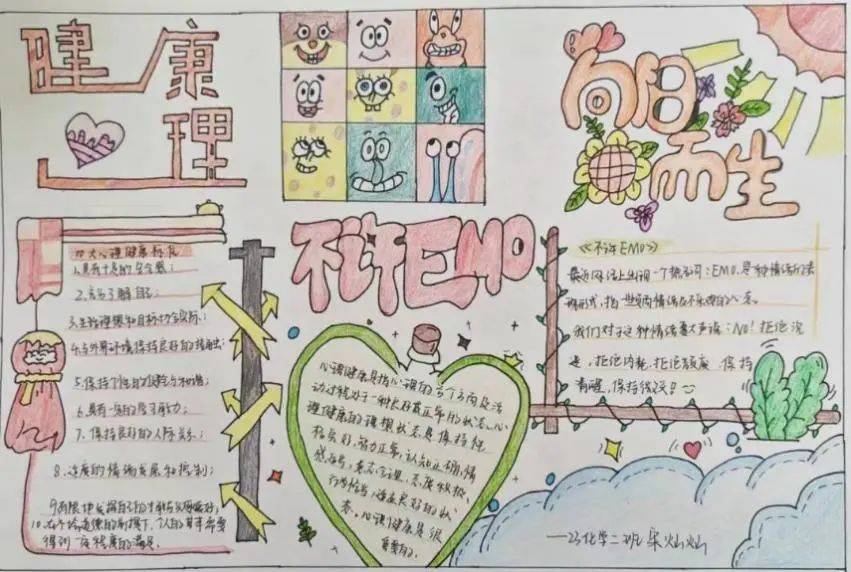 健康
理
向阳
而生
不许EMO
十大心理健康标准
1.具有充足的安全感；
2.充分了解自己；
3.生活理想和目标切合实际；
4.与外界环境保持良好的接触；
5.保持个性的完整与和谐；
6.具有一定的学习能力；
7.保持良好的人际关系；
8.适度的情绪发展和控制；
9.有限地发挥自己的才能与兴趣爱好；
10.在不
的前提下，个人的基本需要
得到一定程度的满足。
心理健康是指心理的各个方面及活
动过程处于一种良好或正常的状态。心
理健康的理想状态是保持性
格良好、智力正常、认知正确、情
感适当、意志合理、态度积极、
行为恰当、适应良好的状
态。心理健康是很
重要的。
《不许EMO》
最近网络上出现一个热词：EMO，是一种情绪的表
我们对于这种情绪要大声说：NO！拒绝沉
迷，拒绝内耗，拒绝颓废，保持
清醒，保持微笑！
——23化学二班 宋灿灿